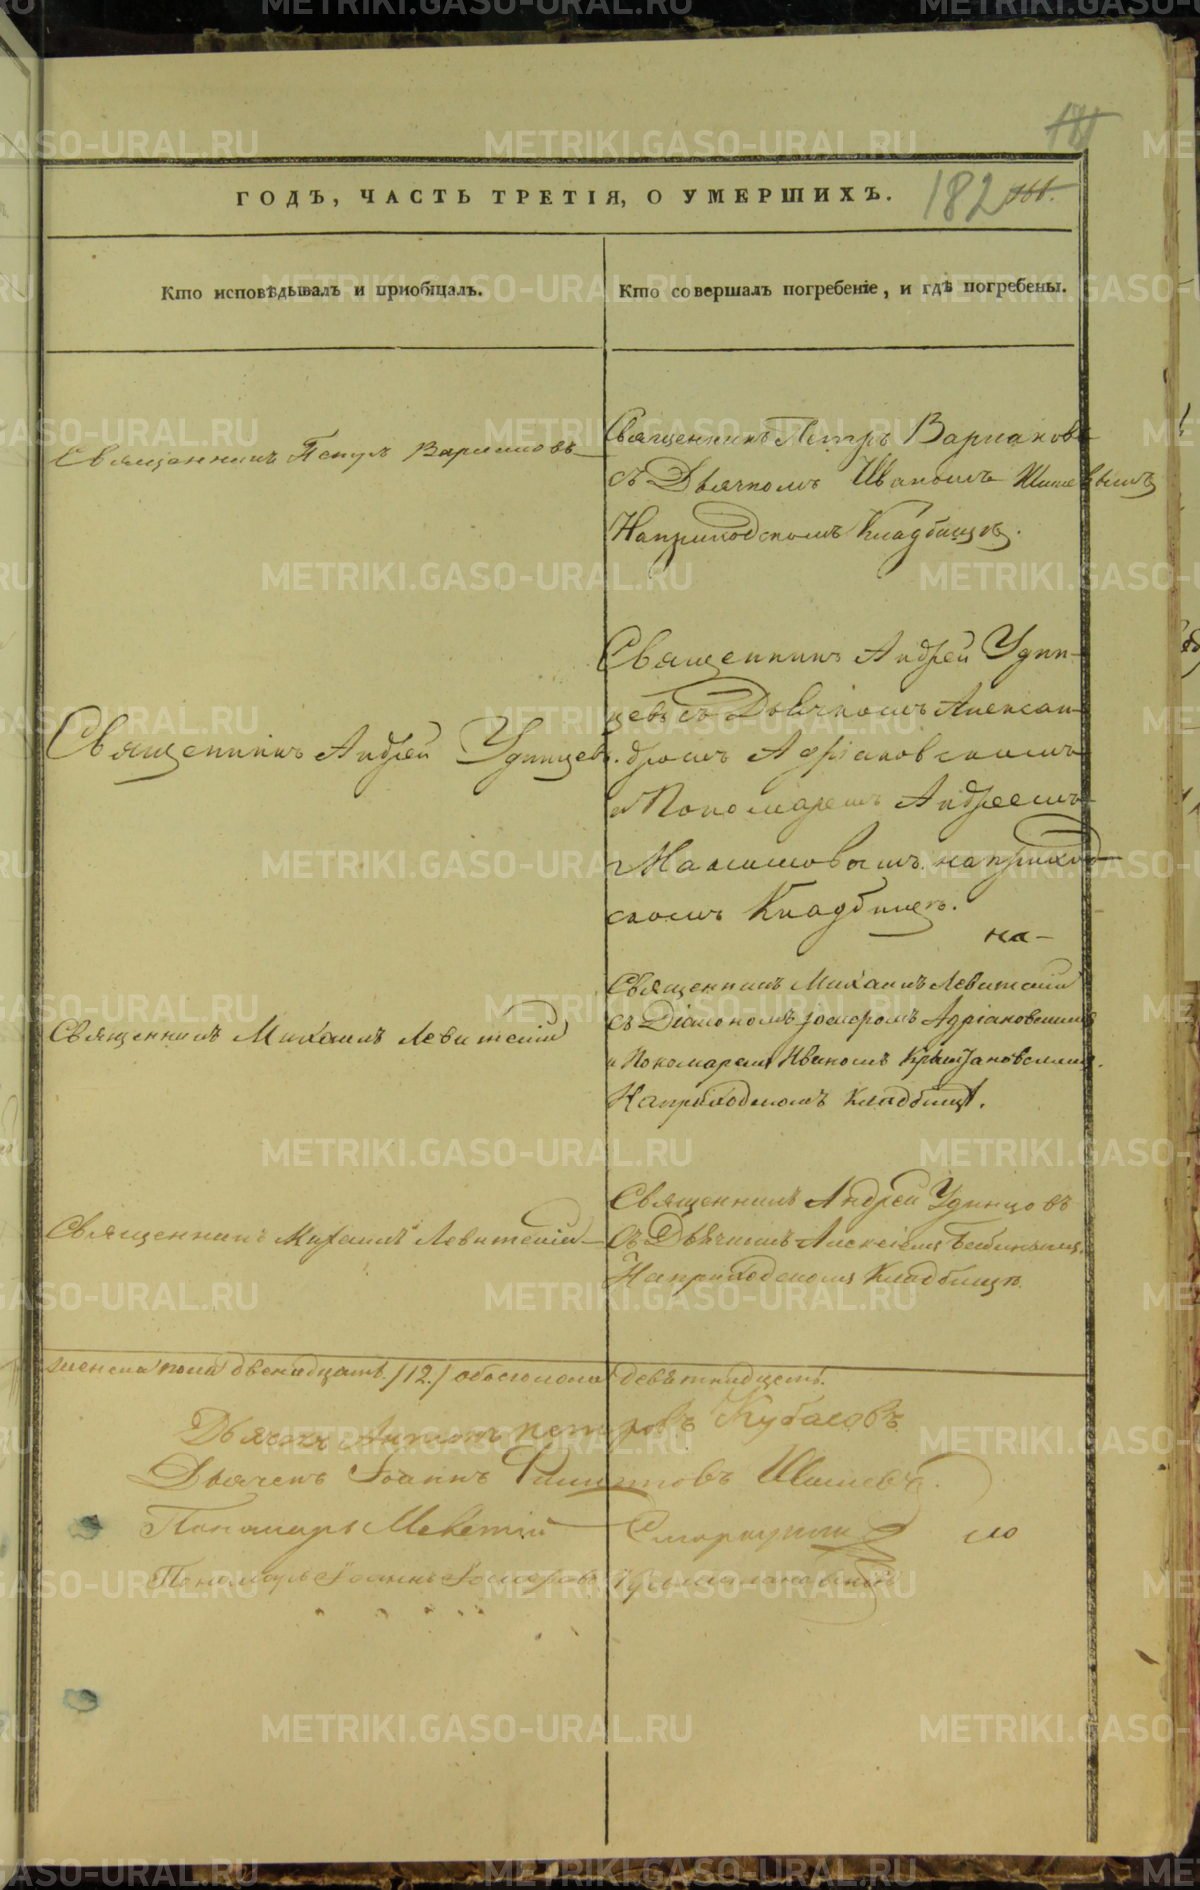 181
ГОДЪ, ЧАСТЬ ТРЕТІЯ, О УМЕРШИХЪ.
182
Кто исповѣдывалъ и пріобщалъ.
Кто совершалъ погребеніе, и гдѣ погребены.
Священникъ Петръ Варлаковъ
Священникъ Петръ Варлаковъ
съ Дьячкомъ Иваномъ
На приходскомъ Кладбищѣ.
Священникъ Андрей Удинцевъ.
Священникъ Андрей Удин-
цевъ съ Дьячкомъ Алексан-
дромъ Адріановскимъ
и Пономаремъ Андреемъ
на приход-
скомъ Кладбищѣ.
на-
Священникъ Михаилъ Левитскій
Священникъ Михаилъ Левитскій
съ Діакономъ Адріановскимъ
и Пономаремъ Иваномъ
На приходскомъ Кладбищѣ.
Священникъ Михаилъ Левитскій
Священникъ Андрей Удинцовъ
съ Дьячкомъ Алексіемъ
На приходскомъ Кладбищѣ
женска пола двенадцать /12./ обоего пола девятнадцать.
Дьячекъ Антонъ Петровъ Кубасовъ
Дьячекъ Іоаннъ Филиповъ
Пономарь
Пономарь Іоаннъ
METRIKI.GASO-URAL.RU